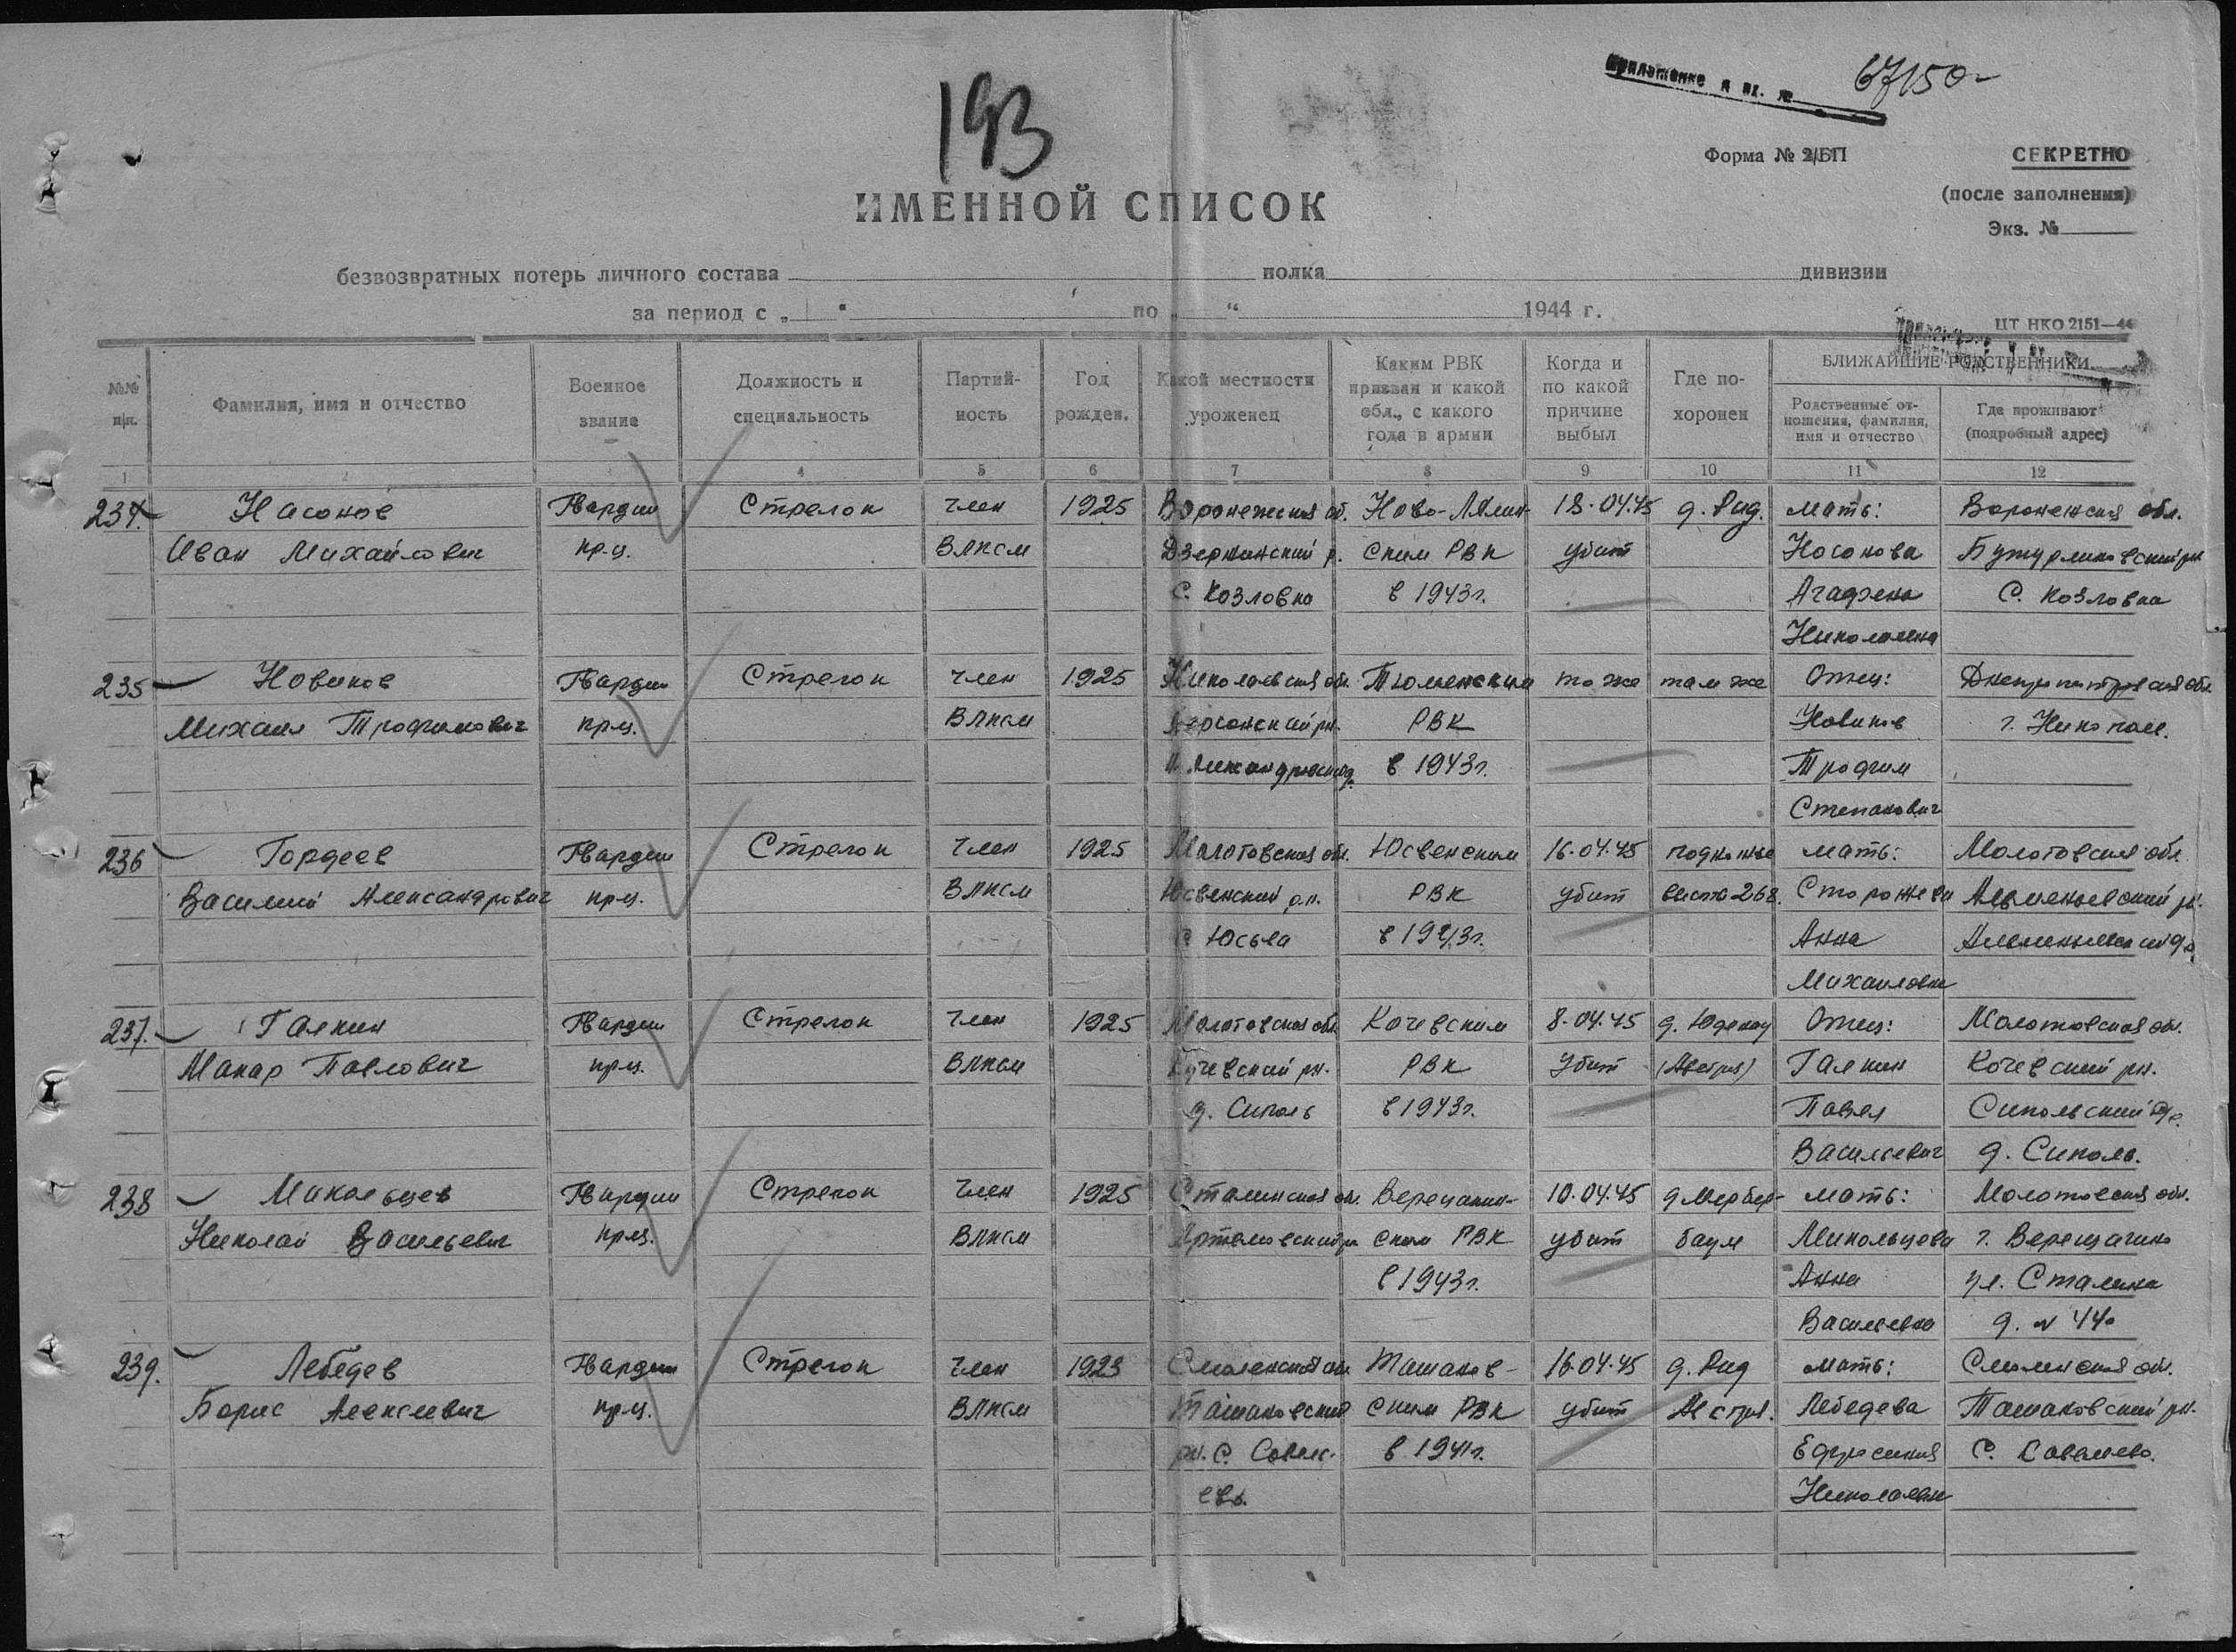 193
Приложение к вх. №
67150-
Форма № 2/БП
СЕКРЕТНО
(после заполнения)
Экз. №
ИМЕННОЙ СПИСОК
безвозвратных потерь личного состава полка дивизии
за период с „ “ по „ “ 1944 г.
ЦТ НКО 2151—44
№№ п/п.
Фамилия, имя и отчество
Военное звание
Должность и специальность
Партийность
Год рожден.
Какой местности уроженец
Каким РВК призван и какой обл., с какого года в армии
Когда и по какой причине выбыл
Где похоронен
БЛИЖАЙШИЕ РОДСТВЕННИКИ
Родственные отношения, фамилия, имя и отчество
Где проживают (подробный адрес)
1 2 3 4 5 6 7 8 9 10 11 12
234 Насонов Гвардии Стрелок член 1925 Воронежская об. Ново-Лялин- 18.04.45 д. Рид. мать: Воронежская обл.
Иван Михайлович кр-ц. ВЛКСМ Дзержинский р. ским РВК убит Носонова Бутурлиновский рн.
С. Козловка в 1943г. Агафена С. Козловка
Николаевна
235 Новиков Гвардии Стрелок член 1925 Николаевская обл. Тюменским то же там же Отец: Днепропетровская обл.
Михаил Трофимович кр-ц. ВЛКСМ Херсонский рн. РВК Новиков г. Никополь.
в 1943г. Трофим
Степанович
236 Гордеев Гвардии Стрелок член 1925 Молотовская обл. Юсвенским 16.04.45 подножье мать: Молотовская обл.
Василий Александрович кр-ц. ВЛКСМ Юсвенский р.н. РВК убит высота 268. Сторожева
С Юсьва в 1943г. Анна
Михаиловна
237. Галкин Гвардии Стрелок член 1925 Молотовская обл. Кочевским 8.04.45 Отец: Молотовская обл.
Макар Павлович кр-ц. ВЛКСМ Кочевский рн. РВК убит (Австрия) Галкин Кочевский рн.
д. Сиполь в 1943г. Павел Сипольский
Васильевич д. Сиполь.
238 Микольцев Гвардии Стрелок член 1925 Сталинская обл. Верещагин- 10.04.45 мать: Молотовская обл.
Николай Васильевич кр-ц. ВЛКСМ Артемовский рн ским РВК убит баум Микольцова г. Верещагино
в 1943г. Анна ул. Сталина
Васильевна д. № 44
239. Лебедев Гвардии Стрелок член 1923 Смоленская обл. Ташаков- 16.04.45 д. Рид мать: Смоленская обл.
Борис Алексеевич кр-ц. ВЛКСМ Ташаковский ским РВК убит Австрия. Лебедева Ташаковский рн.
рн. С. в 1941г. Ефросиния С.
Николаевна